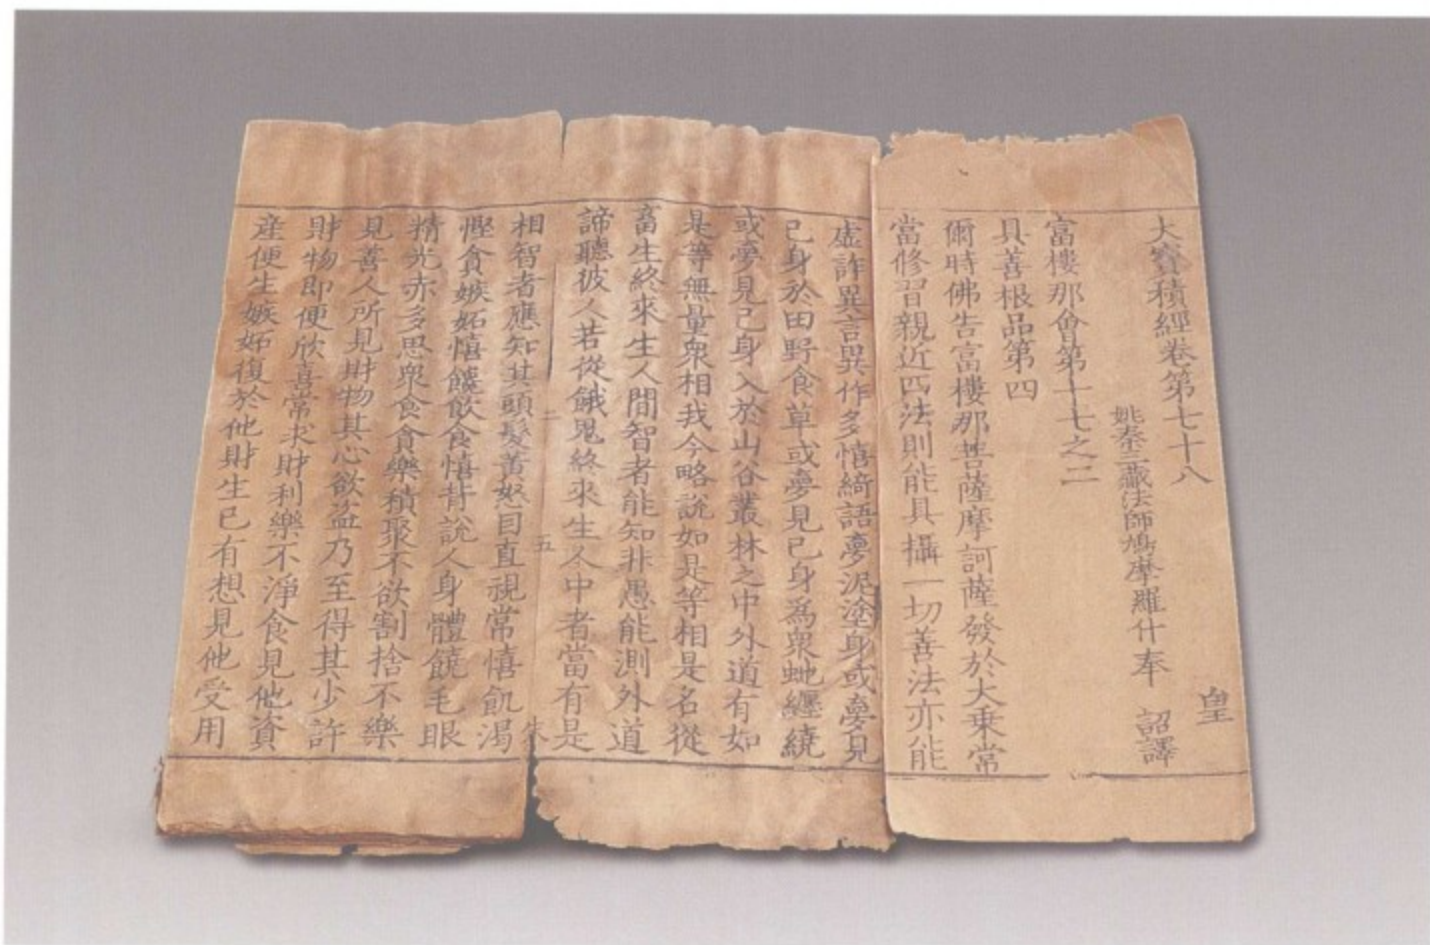 大寶積經卷第七十八
皇
姚秦三藏法師鳩摩羅什奉 詔譯
富樓那會第十七之二
具善根品第四
爾時佛告富樓那菩薩摩訶薩發於大乘常
當修習親近四法則能具攝一切善法亦能
虛詐異言異作多慳綺語夢泥塗身或夢見
己身於田野食草或夢見己身為衆虵纏繞
或夢見己身入於山谷叢林之中外道有如
是等無量衆相我今略說如是等相是名從
畜生終來生人間智者能知非愚能測外道
諦聽彼人若從餓鬼終來生人中者當有是
二 五 朱
相智者應知其頭髮黃怒目直視常憘飢渴
慳貪嫉妬憘饒飲食憘背說人身體饒毛眼
精光赤多思衆食貪樂積聚不欲割捨不樂
見善人所見財物其心欲盜乃至得其少許
財物即便欣喜常求財利樂不淨食見他資
産便生嫉妬復於他財生己有想見他受用